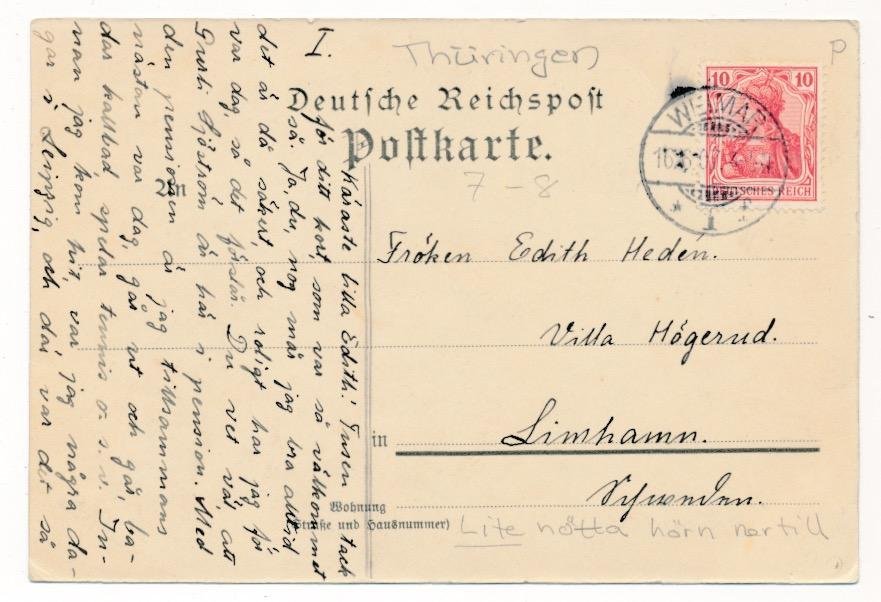 I.
Thüringen
P
Deutsche Reichspost
Postkarte.
7-8
10 10
DEUTSCHES REICH
WEIMAR
1
An
Fröken Edith Hedén.
Villa Högerud.
in
Limhamn.
Schweden.
Wohnung
(Straße und Hausnummer)
Lite nötta hörn nertill
Käraste lilla Edith! Tusen tack
för ditt kort, som var så välkommet
så. Ja, du, nog mår jag bra alltid
det är då säkert, och roligt har jag för
var dag, så det förslår. Du vet väl att
Gurli Sjöström är här i pension. Med
den pensionen är jag tillsammans
nästan var dag, går ut och går, ba-
dar kallbad, spelar tennis o. s. v. In-
nan jag kom hit, var jag några da-
gar i Leipzig, och där var det så